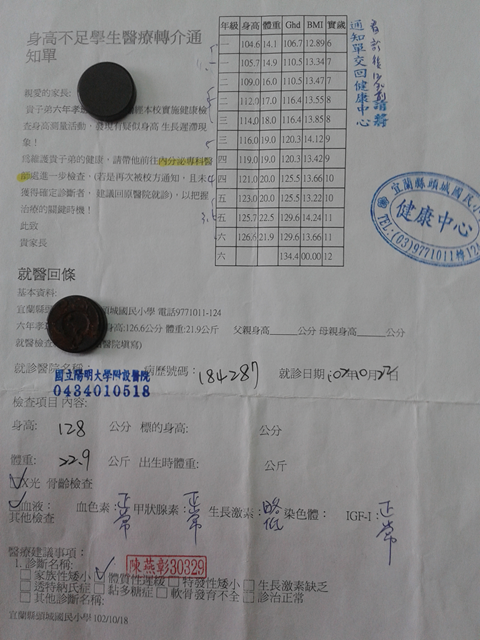 身高不足學生醫療轉介通
知單
親愛的家長:
貴子弟六年孝
經本校實施健康檢
查身高測量活動,發現有疑似身高 生長遲滯現
象!
為維護貴子弟的健康,請帶他前往內分泌專科醫
師處進一步檢查,(若是再次被校方通知,且未
獲得確定診斷者,建議回原醫院就診),以把握
治療的關鍵時機!
此致
貴家長
年級 身高 體重 Ghd BMI 實歲
一 104.6 14.1 106.7 12.89 6
一 105.7 14.9 110.5 13.34 7
二 109.0 16.0 110.5 13.47 7
二 112.0 17.0 116.4 13.55 8
三 114.0 18.0 116.4 13.85 8
三 116.0 19.0 120.3 14.12 9
四 119.0 19.0 120.3 13.42 9
四 121.0 20.0 125.5 13.66 10
五 123.0 20.0 125.5 13.22 10
五 125.7 22.5 129.6 14.24 11
六 126.6 21.9 129.6 13.66 11
六 134.4 00.00 12
請將
通知單交回健康中心
宜蘭縣頭城國民小
健康中心
TEL:(03)9771011轉124
就醫回條
基本資料:
宜蘭縣頭
頭城國民小學 電話9771011-124
六年孝
身高:126.6公分 體重:21.9公斤 父親身高______公分 母親身高______公分
就醫檢查
醫院填寫)
就診醫院名稱: 病歷號碼: 184287 就診日期: 102年10月22日
國立陽明大學附設醫院
0434010518
檢查項目 內容:
身高: 128 公分 標的身高: 公分
體重: 22.9 公斤 出生時體重: 公斤
X光 骨齡檢查
血液: 血色素: 正常 甲狀腺素: 正常 生長激素: 略低 染色體: IGF-I: 正常
其他檢查
醫療建議事項:
陳燕彰30329
1. 診斷名稱:
□家族性矮小 ✓體質性遲緩 □特發性矮小 □生長激素缺乏
□透特納氏症 □黏多糖症 □軟骨發育不全 □診治正常
□其他診斷名稱:
宜蘭縣頭城國民小學 102/10/18